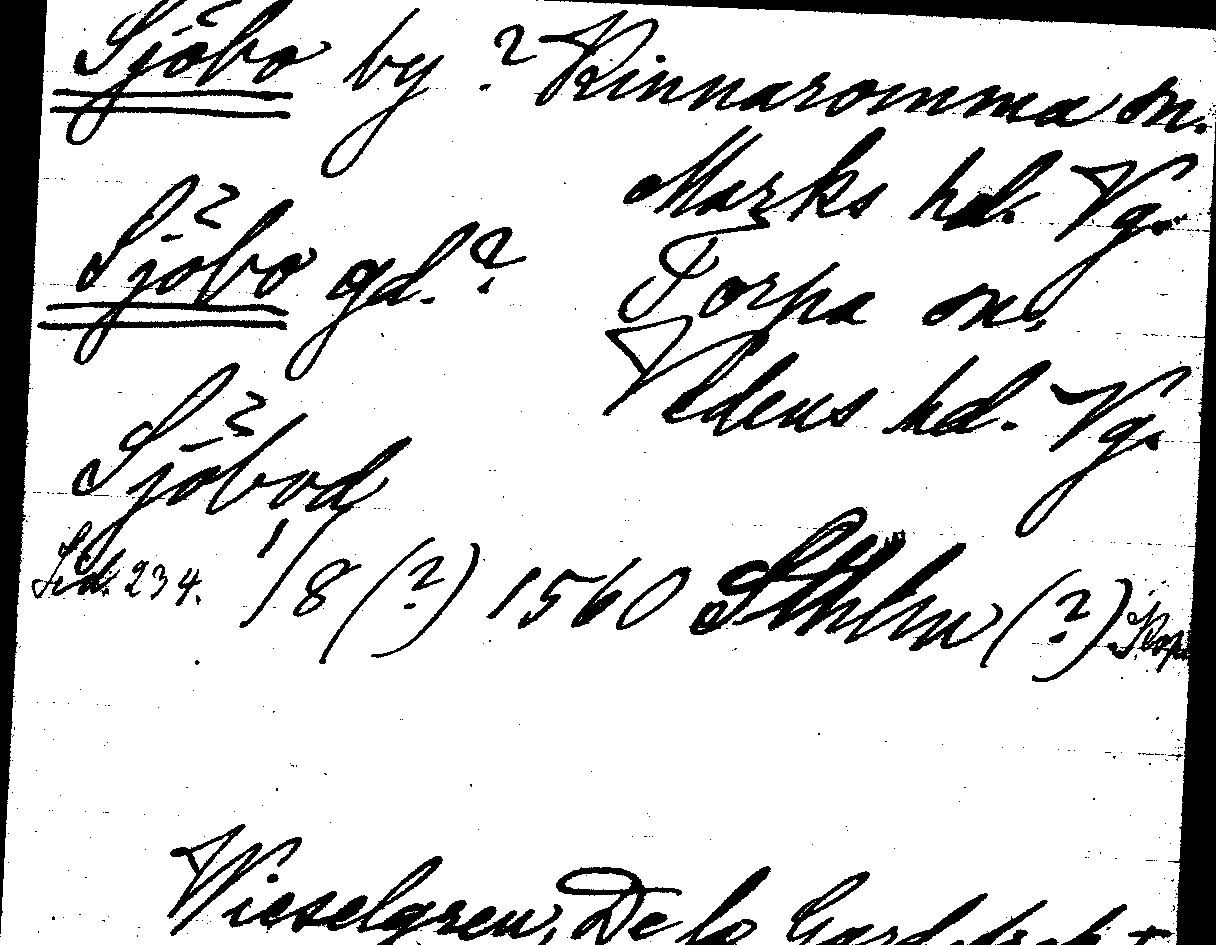 Sjöbo by ? Kinnaromma sn.
Marks hd. Vg.
Sjöbo gd. ? Torpa sn.
Vedens hd. Vg.
Sjöbod
18 (?) 1560 Sthlm (?)
Wieselgren, De la